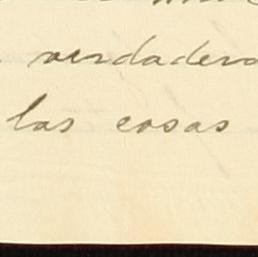 verdadero
las cosas